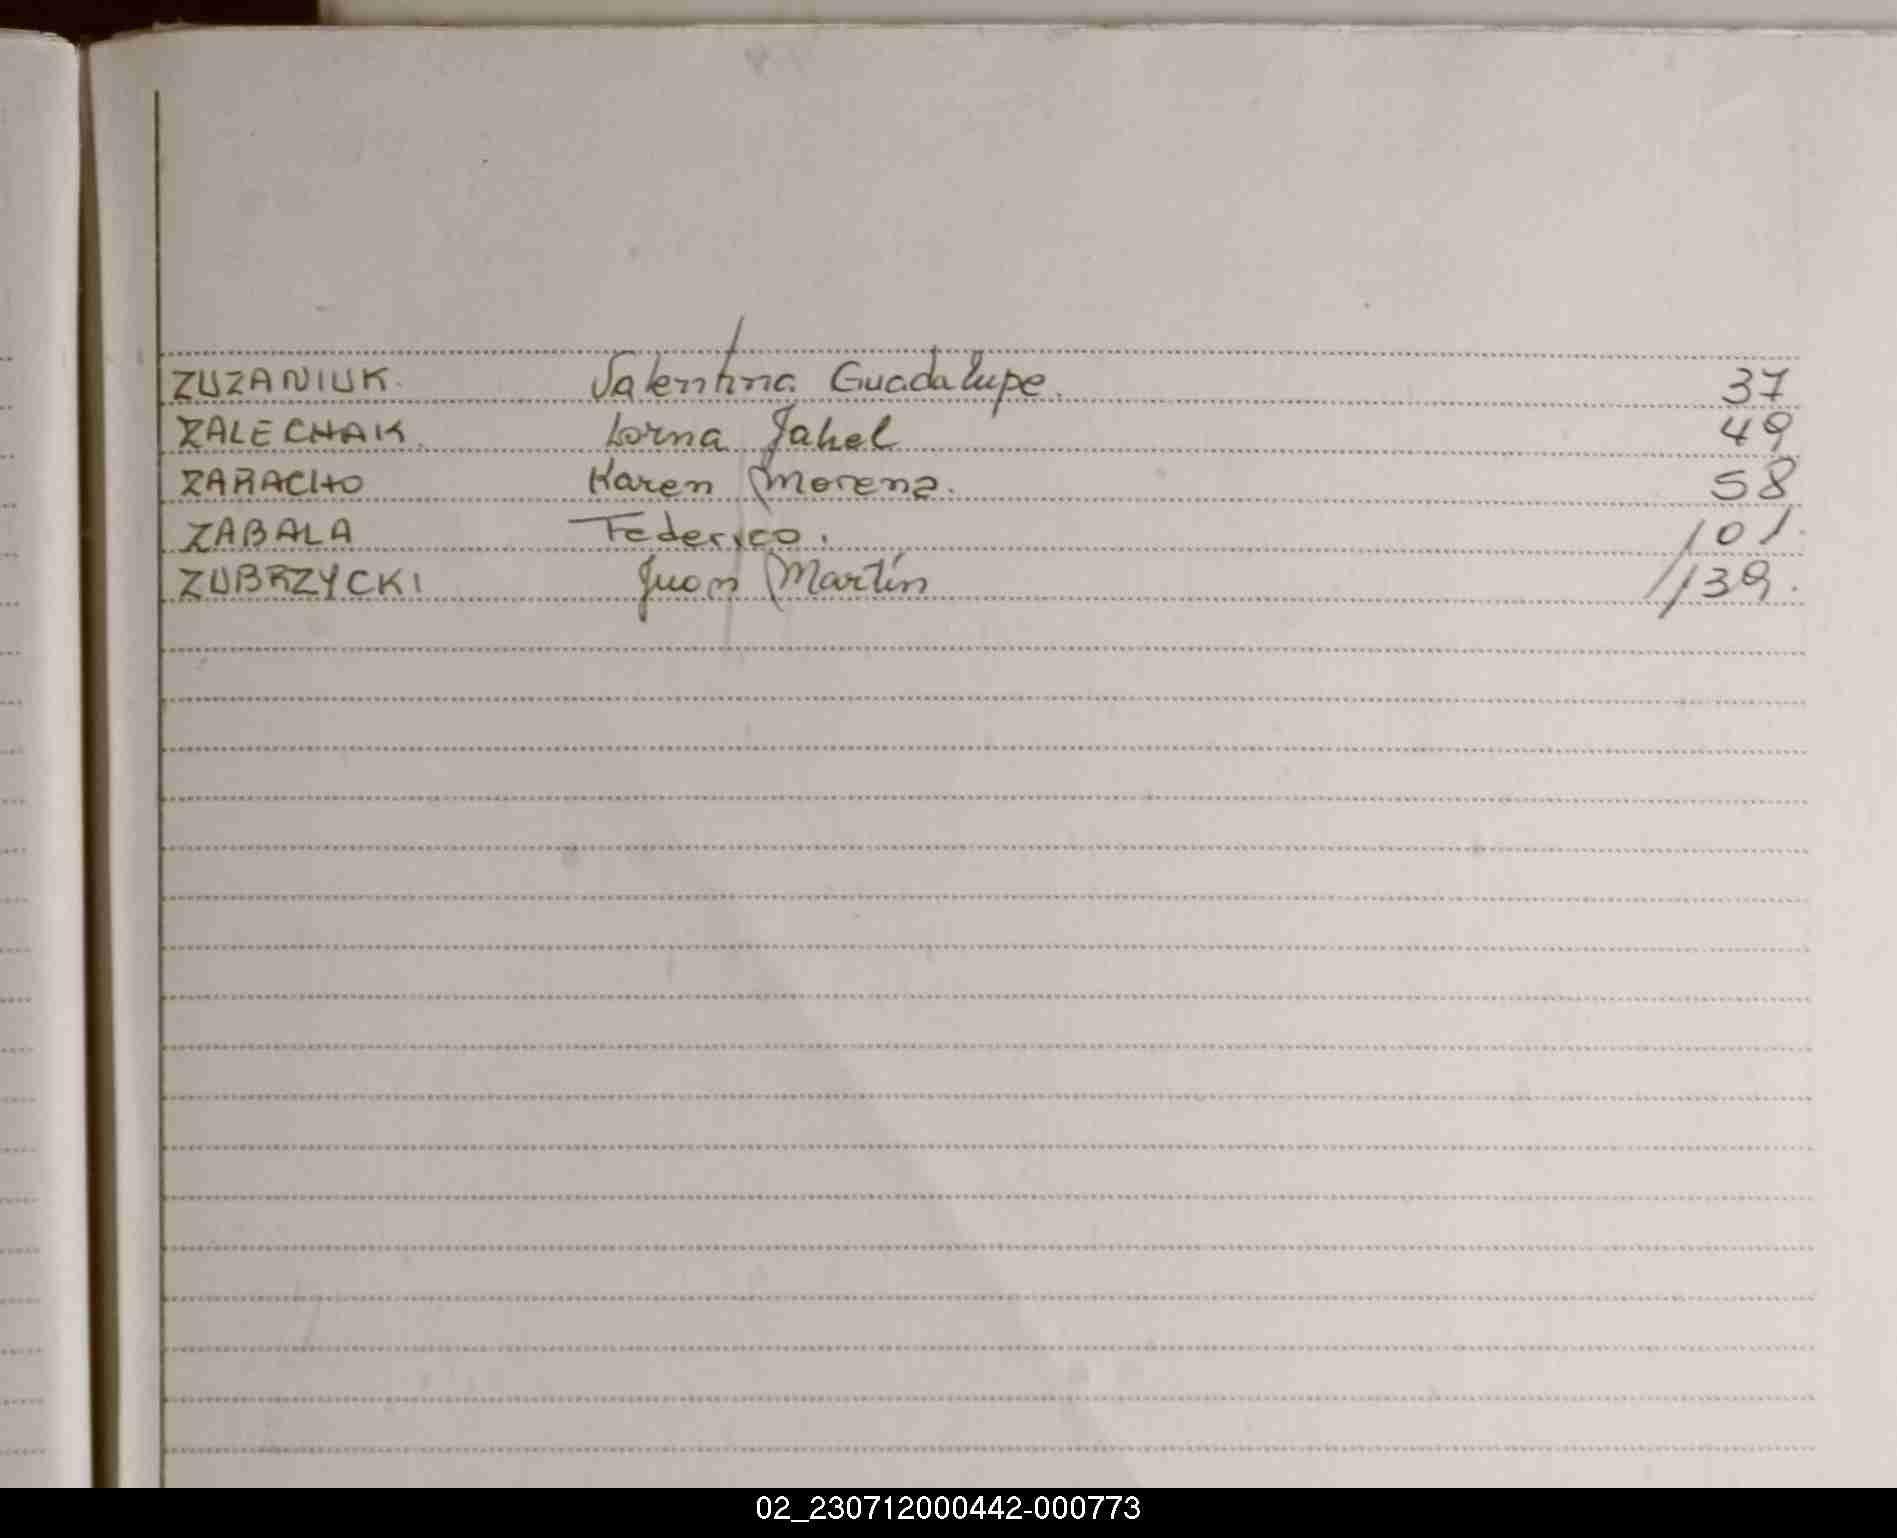 ZUZANIUK. Valentina Guadalupe. 37
ZALECHAK. Lorna Jahel 49
ZARACHO Karen Morena. 58
ZABALA Federico. 101.
ZUBRZYCKI Juan Martín 139.
02_230712000442-000773